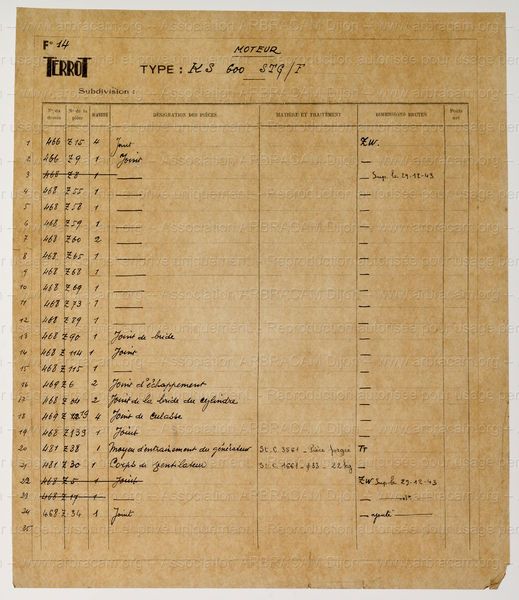 F° 14
MOTEUR
TERROT
TYPE : KS 600 STG/F
Subdivision :
Nos du dessin Nos de la pièce NOMBRE DÉSIGNATION DES PIÈCES MATIÈRE ET TRAITEMENT DIMENSIONS BRUTES Poids net
1 466 Z 15 4 Joint ZW.
2 466 Z 9 1 Joint —
3 468 Z 8 1 — — Sup. le 29-12-43
4 468 Z 55 1 — —
5 468 Z 58 1 — —
6 468 Z 59 1 — —
7 468 Z 60 2 — —
8 468 Z 65 1 — —
9 468 Z 68 1 — —
10 468 Z 69 1 — —
11 468 Z 73 1 — —
12 468 Z 89 1 — —
13 468 Z 90 1 Joint de bride —
14 468 Z 114 1 Joint —
15 468 Z 115 1 — —
16 469 Z 6 2 Joint d'échappement —
17 468 Z 2 Joint de la bride du cylindre —
18 469 Z 4 Joint de culasse —
19 468 Z 139 1 Joint —
20 481 Z 38 1 Moyeu d'entrainement du générateur St.C. 3561 - Pièce forgée Tr
21 481 Z 30 1 Corps de ventilateur St.C. 1661 - 22 kg —
22 468 Z 5 1 Joint ZW Sup. le 29-12-43
23 468 Z 17 1 — — d°
24 468 Z 34 1 Joint — ajouté —
25